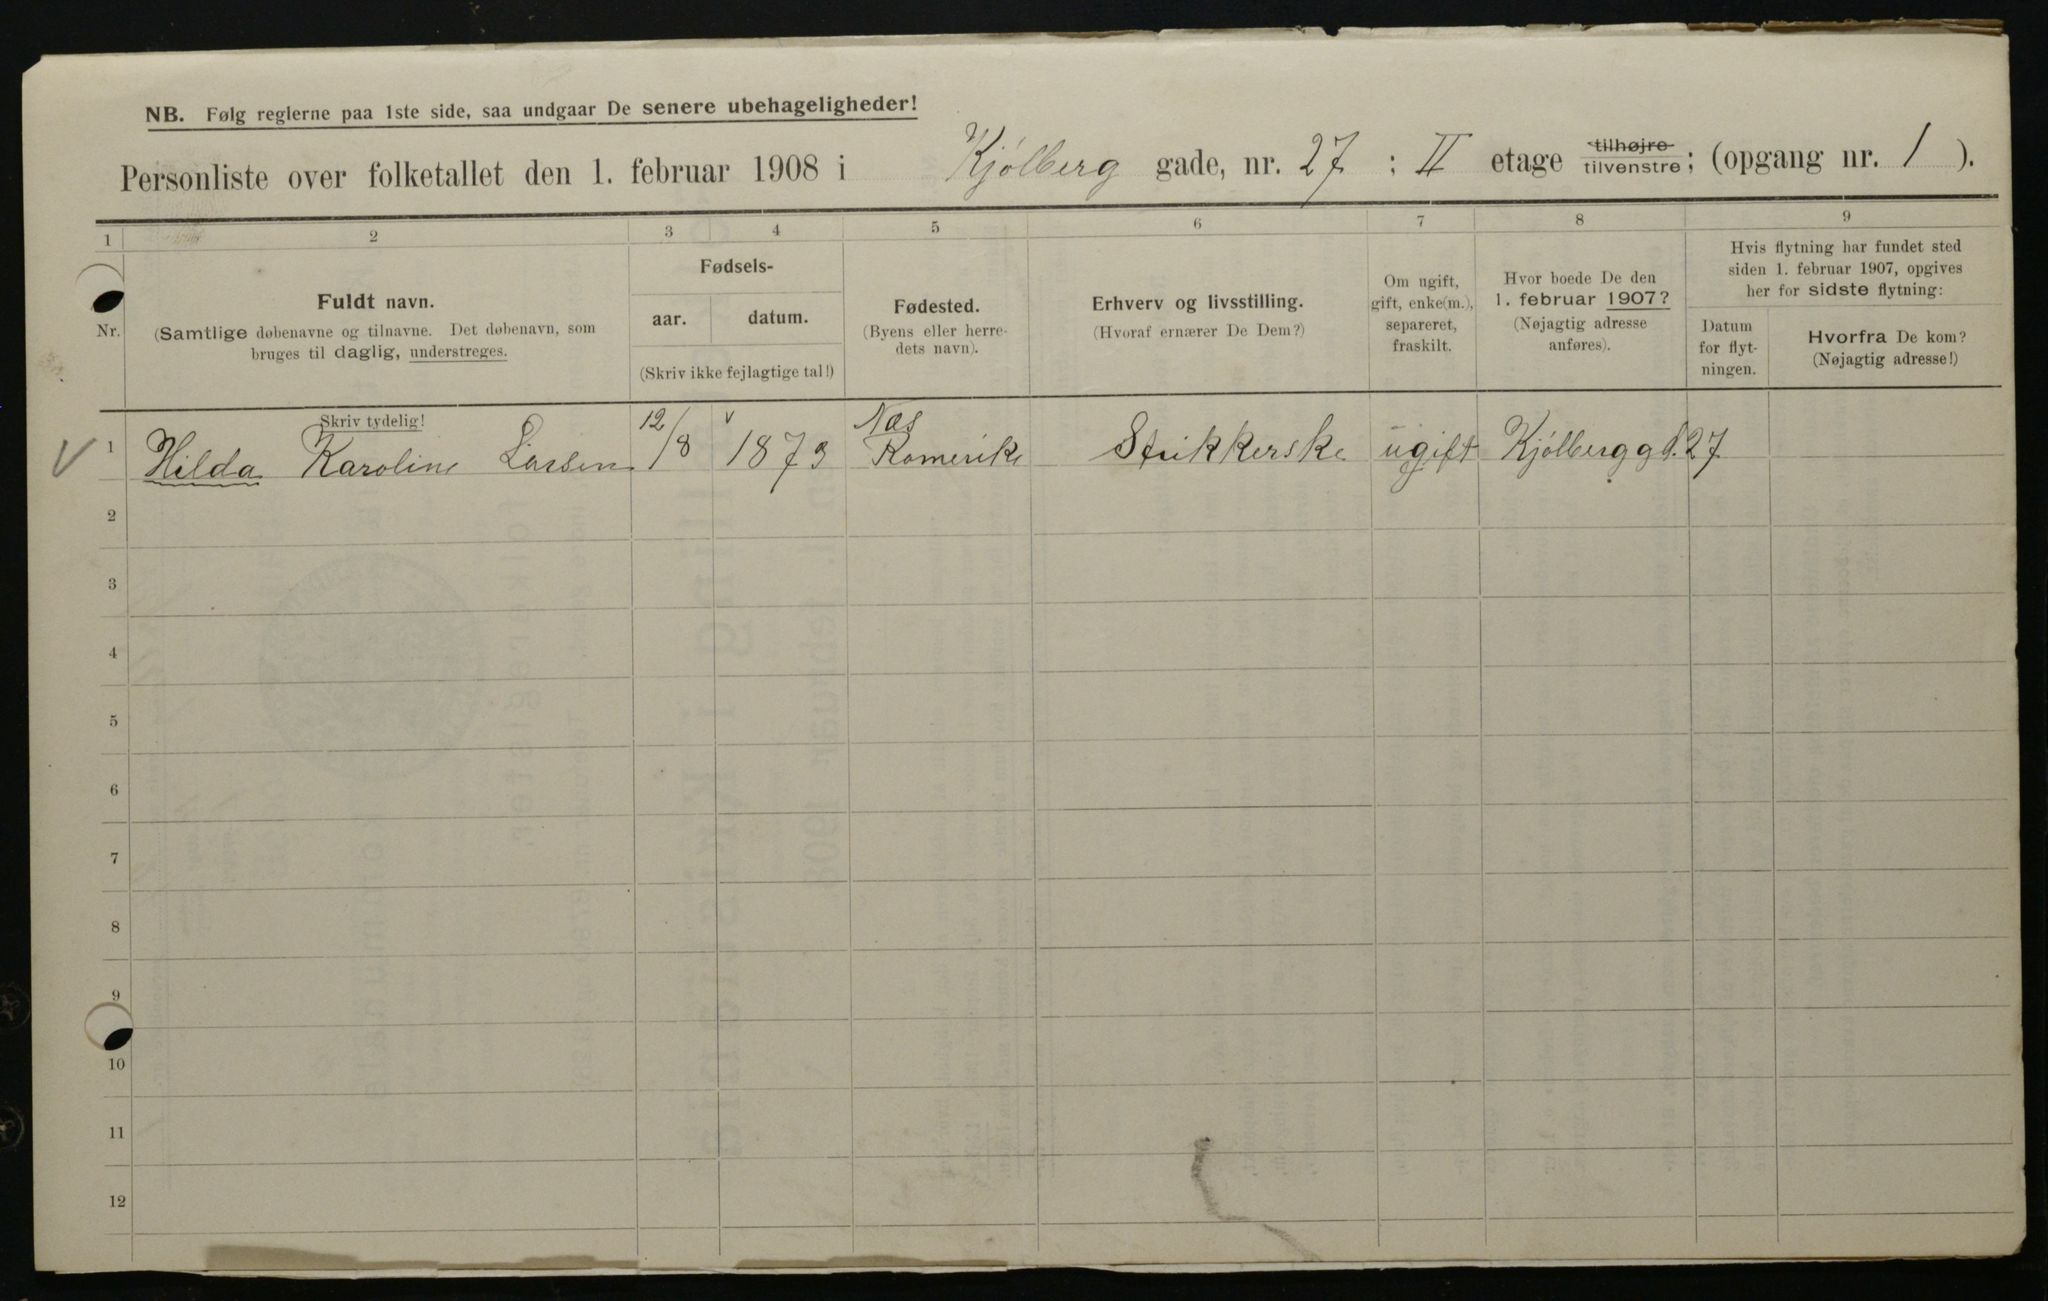 NB. Følg reglerne paa 1ste side, saa undgaar De senere ubehageligheder!
Personliste over folketallet den 1. februar 1908 i Kjølberg gade, nr. 27 : II etage tilhøjre tilvenstre; (opgang nr. 1 ).
1 2 3 4 5 6 7 8 9
Nr.
Fuldt navn.
(Samtlige døbenavne og tilnavne. Det døbenavn, som
bruges til daglig, understreges.
Skriv tydelig!
Fødsels-
aar. datum.
(Skriv ikke fejlagtige tal!)
Fødested.
(Byens eller herre-
dets navn).
Erhverv og livsstilling.
(Hvoraf ernærer De Dem?)
Om ugift,
gift, enke(m.),
separeret,
fraskilt.
Hvor boede De den
1. februar 1907?
(Nøjagtig adresse
anføres).
Hvis flytning har fundet sted
siden 1. februar 1907, opgives
her for sidste flytning:
Datum
for flyt-
ningen.
Hvorfra De kom?
(Nøjagtig adresse!)
1 Hilda Karoline Larsen 12/8 1873 Næs Romerike Strikkerske ugift Kjølberggd. 27
2
3
4
5
6
7
8
9
10
11
12